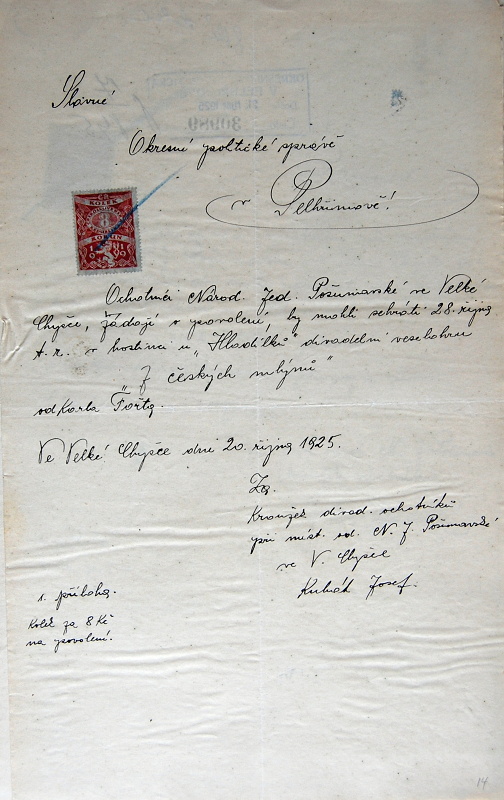 Slavné
Okresní politické správě
v Pelhřimově!
Ochotníci Národ. Jed. Pošumavské ve Velké
Chyšce, žádají o povolení, by mohli sehráti 28. října
t. r. v hostinci u „Hladílků" divadelní veselohru
„Z českých mlýnů"
od Karla Fořta.
Ve Velké Chyšce dne 20. října 1925.
Za
Kroužek divad. ochotníků
při míst. od. N. J. Pošumavské
ve V. Chyšce
Josef.
1. příloha.
Kolek za 8 Kč
na povolení.
KOLEK
8
1919
30980
14